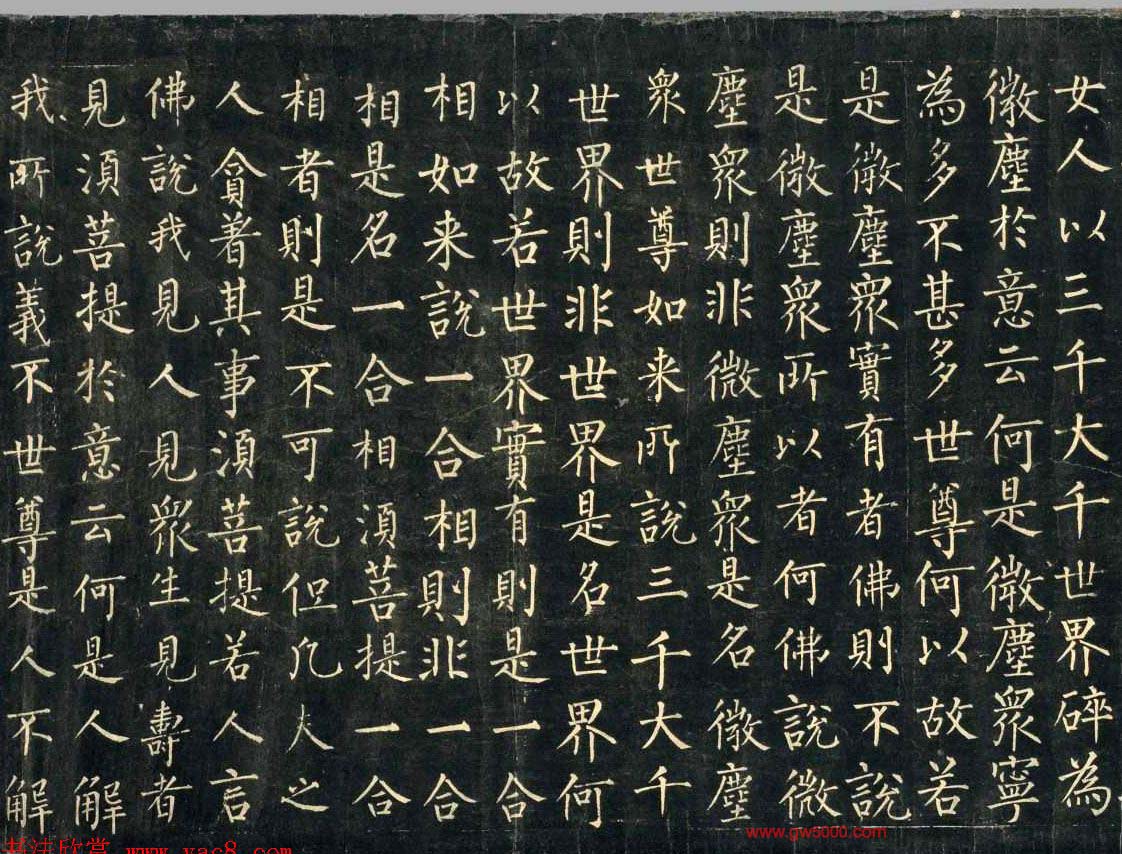 女人以三千大千世界碎為
微塵於意云何是微塵眾寧
為多不甚多世尊何以故若
是微塵眾實有者佛則不說
是微塵眾所以者何佛說微
塵眾則非微塵眾是名微塵
眾世尊如来所說三千大千
世界則非世界是名世界何
以故若世界實有則是一合
相如来說一合相則非一合
相是名一合相須菩提一合
相者則是不可說但凡夫之
人貪着其事須菩提若人言
佛說我見人見眾生見壽者
見須菩提於意云何是人解
我所說義不世尊是人不解
www.gw5000.com
书法欣赏 www.yac8.com